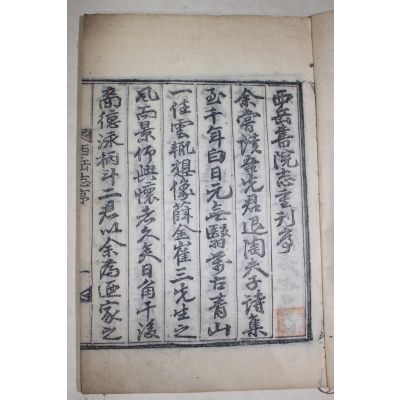 西岳書院志重刊序
余嘗讀吾先君退陶夫子詩集
至千年白日元無翳萬古青山
一任雲輒想像薛金崔三先生之
風而景仰興懷者久矣日角干後
裔德泳柄斗二君以余為通家之
西岳志序
一